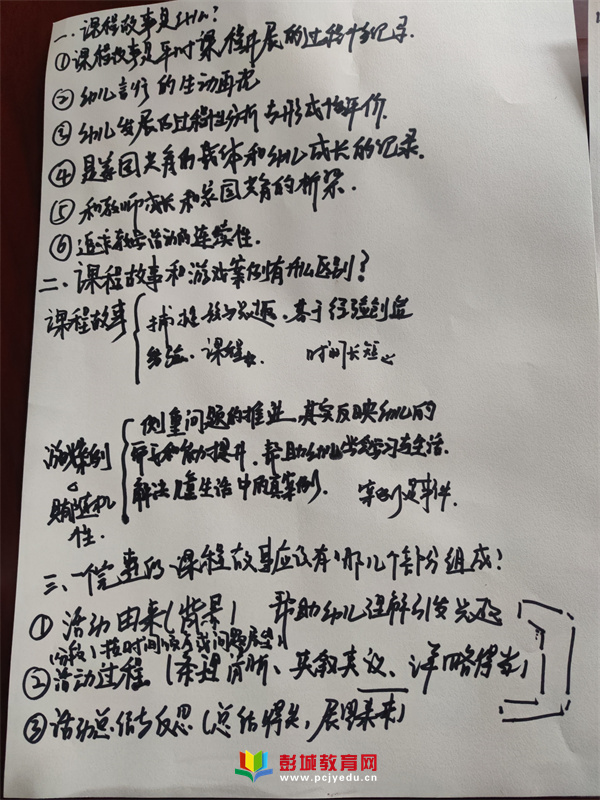 一.课程故事是什么?
①课程故事是平时课程开展的过程性记录.
②幼儿言行的生动再现
③幼儿发展的过程性分析与形成性评价.
④是家园共育的载体和幼儿成长的记录.
⑤和教师成长和家园共育的桥梁.
⑥追求教学活动的连续性.
二.课程故事和游戏案例有什么区别?
课程故事
捕捉 兴趣.基于经验创造
经验.课程 时间长短
侧重问题的推进 真实反映幼儿的
游戏案例
和能力提升.帮助幼儿 学习与生活.
随机性.
解决 生活中的真案例. 案例是事件.
三.一个完整的课程故事应该有哪几个部分组成?
①活动由来(背景) 帮助幼儿理解引发
(分段)按时间 或问题
②活动过程(条理清晰、夹叙夹议、详略得当)
③活动总结与反思(总结得失,展望未来)
彭城教育网
www.pcjyedu.cn